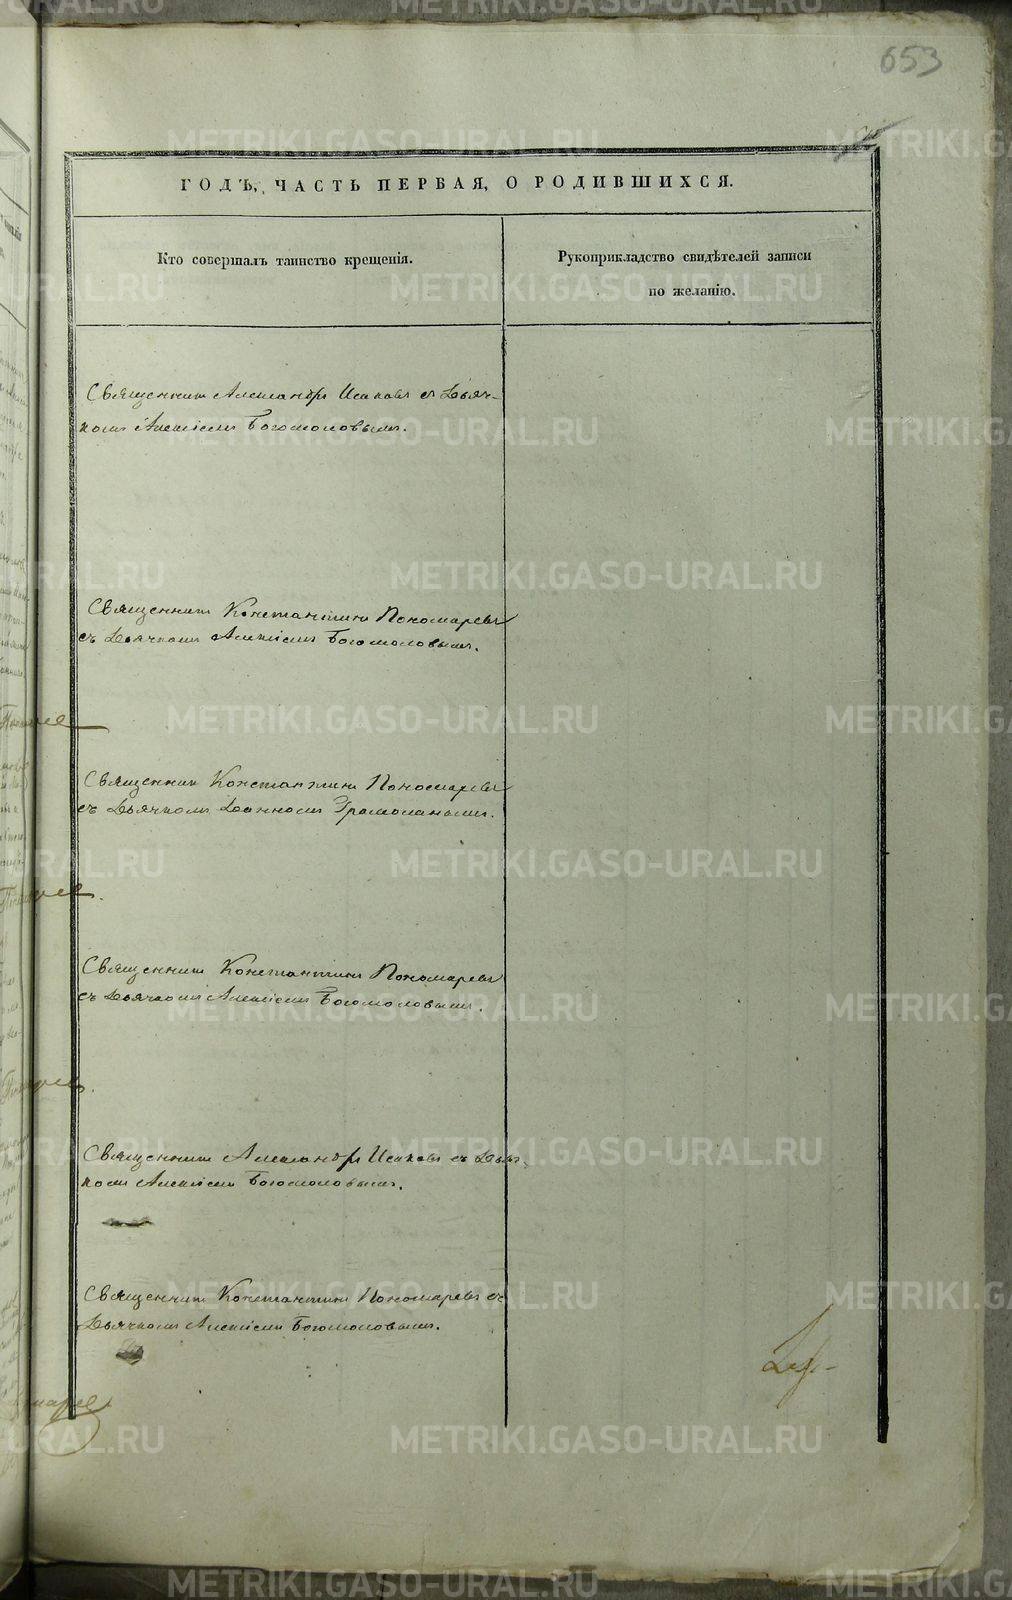 653
ГОДЪ, ЧАСТЬ ПЕРВАЯ, О РОДИВШИХСЯ.
Кто совершалъ таинство крещенія.
Рукоприкладство свидѣтелей записи
по желанію.
Священникъ Александръ Исаковъ съ Дьяч-
комъ Алексіемъ Богомоловымъ.
Священникъ Константинъ Пономаревъ
съ Дьячкомъ Алексіемъ Богомоловымъ.
Священникъ Константинъ Пономаревъ
съ Дьячкомъ Іоанномъ
Священникъ Константинъ Пономаревъ
съ Дьячкомъ Алексіемъ Богомоловымъ.
Священникъ Александръ Исаковъ съ Дьяч-
комъ Алексіемъ Богомоловымъ.
Священникъ Константинъ Пономаревъ съ
Дьячкомъ Алексіемъ Богомоловымъ.
METRIKI.GASO-URAL.RU